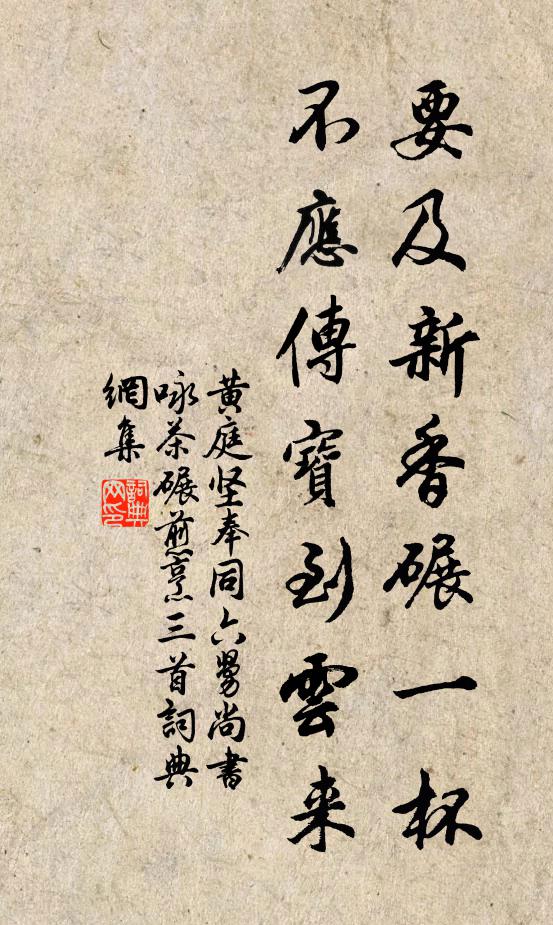 要及新香碾一杯
不應傳寶到雲来
黄庭坚奉同六舅尚書
咏茶碾煎烹三首詞典
網集
詞典
网印